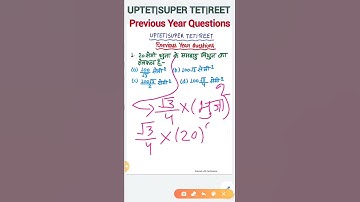 UPTET|SUPER TET|REET
Previous Year Questions
UPTET|SUPER TET|REET
Previous Year Questions
20 सेमी भुजा के समबाहु त्रिभुज का
क्षेत्रफल है-
(a) 200/√3 सेमी² (b) 200√3 सेमी²
(c) 200√3/2 सेमी² (d) 200√3/4 सेमी²
√3/4 × (भुजा)²
√3/4 × (20)